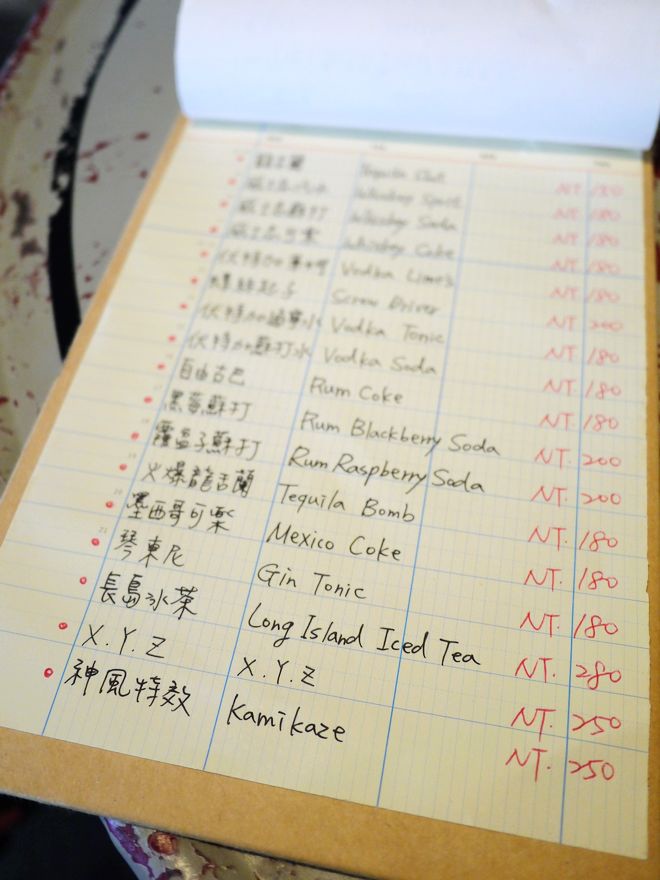 Tequila Shot NT 150
威士忌汽水 Whiskey NT 180
威士忌蘇打 Whiskey Soda NT 180
威士忌可樂 Whiskey Coke NT 180
伏特加萊姆 Vodka Lime's NT 180
螺絲起子 Screw Driver NT 200
伏特加通寧水 Vodka Tonic NT 180
伏特加蘇打水 Vodka Soda NT 180
自由古巴 Rum Coke NT 180
黑莓蘇打 Rum Blackberry Soda NT. 200
覆盆子蘇打 Rum Raspberry Soda NT. 200
火爆龍舌蘭 Tequila Bomb NT. 180
墨西哥可樂 Mexico Coke NT. 180
琴東尼 Gin Tonic NT. 180
長島冰茶 Long Island Iced Tea NT. 280
X.Y.Z X.Y.Z NT. 250
神風特效 Kamikaze NT. 250